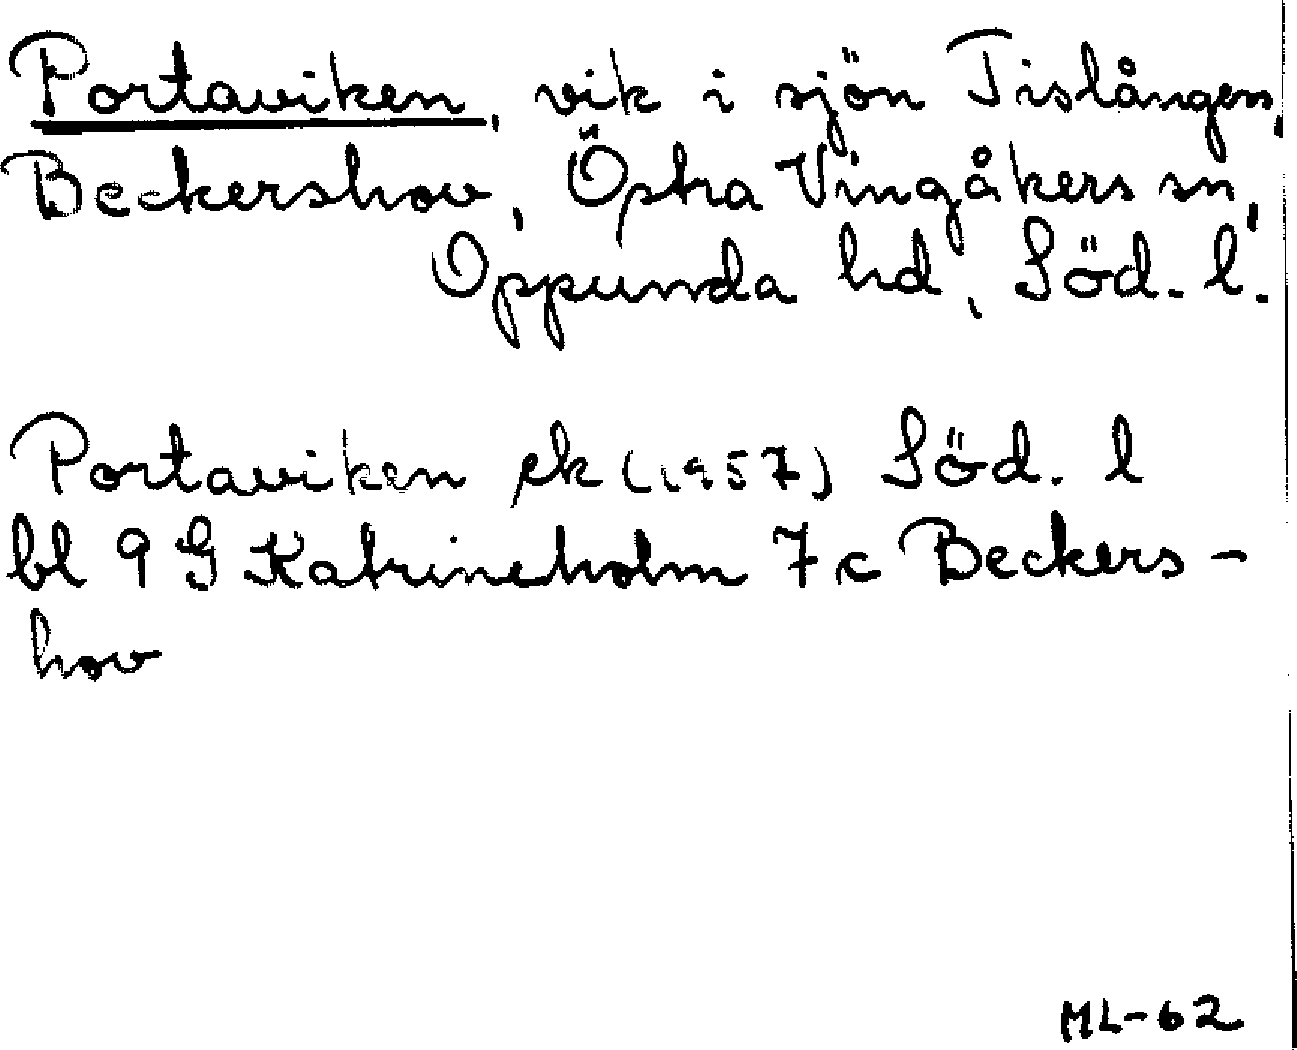 Portaviken, vik i sjön Tislången,
Beckershov, Östra Vingåkers sn,
Oppunda hd, Söd. l.
Portaviken ek (1957) Söd. l
bl 9 G Katrineholm 7 c Beckers-
hov
ML-62